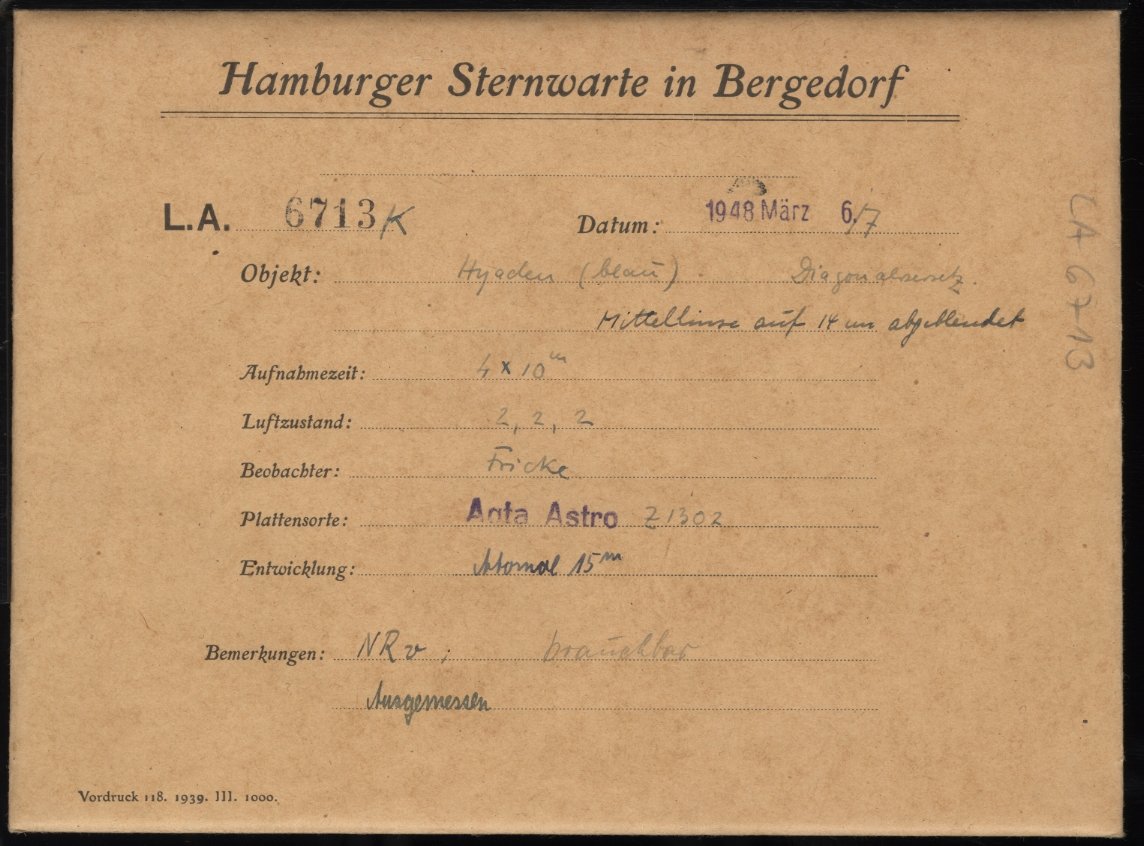 Hamburger Sternwarte in Bergedorf
L.A. 6713 K Datum: 1948 März 6./7
Objekt: Hyaden (blau). Diagonalversetz.
Mittellinse auf 14 cm abgeblendet
Aufnahmezeit: 4 x 10m
Luftzustand: 2, 2, 2
Beobachter: Fricke
Plattensorte: Agfa Astro Z 1302
Entwicklung: Atomal 15m
Bemerkungen: NR v ; brauchbar
Ausgemessen
Vordruck 118. 1939. III. 1000.
LA 6713